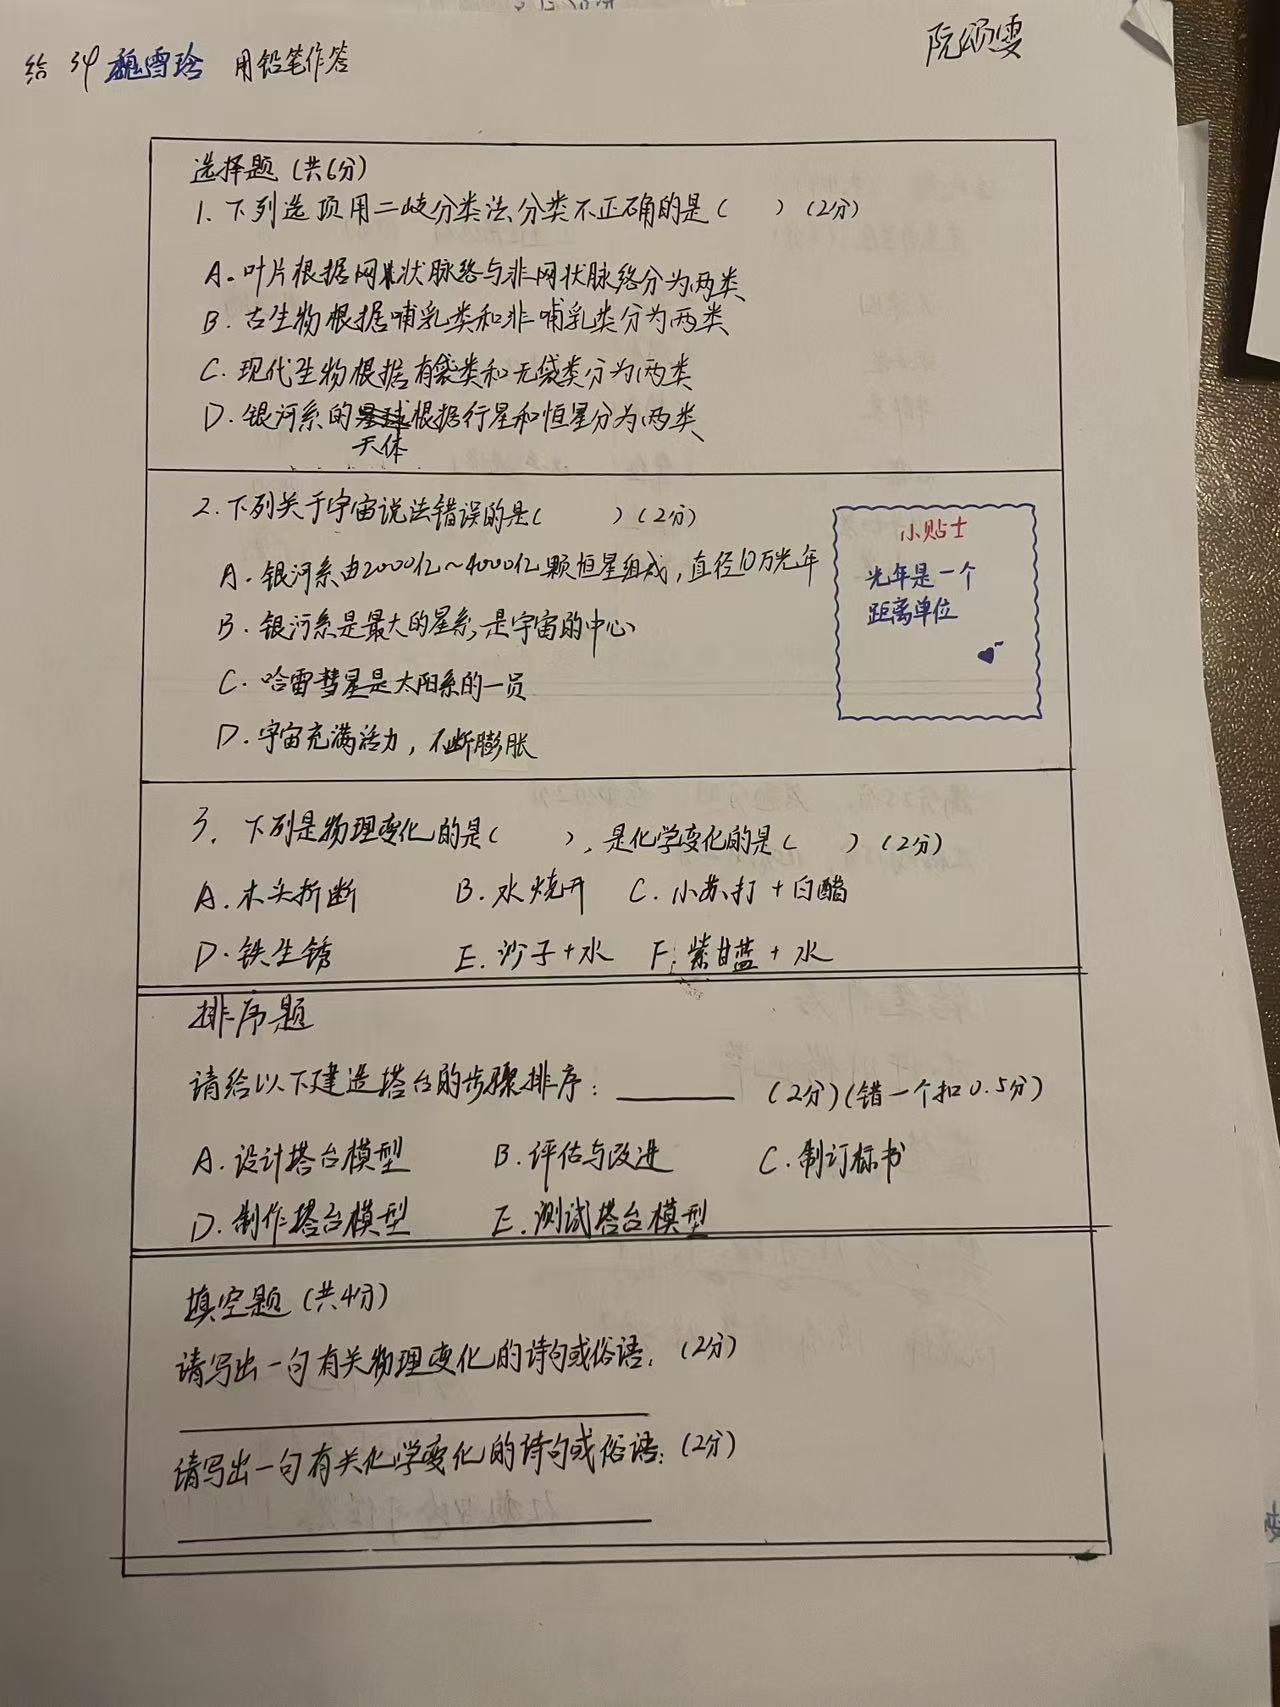 给 34 魏雪琀 用铅笔作答
阮颂雯
选择题（共6分）
1. 下列选项用二岐分类法分类不正确的是（ ）（2分）
A. 叶片根据网状脉络与非网状脉络分为两类
B. 古生物根据哺乳类和非哺乳类分为两类
C. 现代生物根据有袋类和无袋类分为两类
D. 银河系的天体根据行星和恒星分为两类
2. 下列关于宇宙说法错误的是（ ）（2分）
A. 银河系由2000亿～4000亿颗恒星组成，直径10万光年
B. 银河系是最大的星系，是宇宙的中心
C. 哈雷彗星是太阳系的一员
D. 宇宙充满活力，不断膨胀
小贴士
光年是一个
距离单位
3. 下列是物理变化的是（ ），是化学变化的是（ ）（2分）
A. 木头折断 B. 水烧开 C. 小苏打+白醋
D. 铁生锈 E. 沙子+水 F. 紫甘蓝+水
排序题
请给以下建造塔台的步骤排序：______（2分）（错一个扣0.5分）
A. 设计塔台模型 B. 评估与改进 C. 制订标书
D. 制作塔台模型 E. 测试塔台模型
填空题（共4分）
请写出一句有关物理变化的诗句或俗语：（2分）
请写出一句有关化学变化的诗句或俗语：（2分）